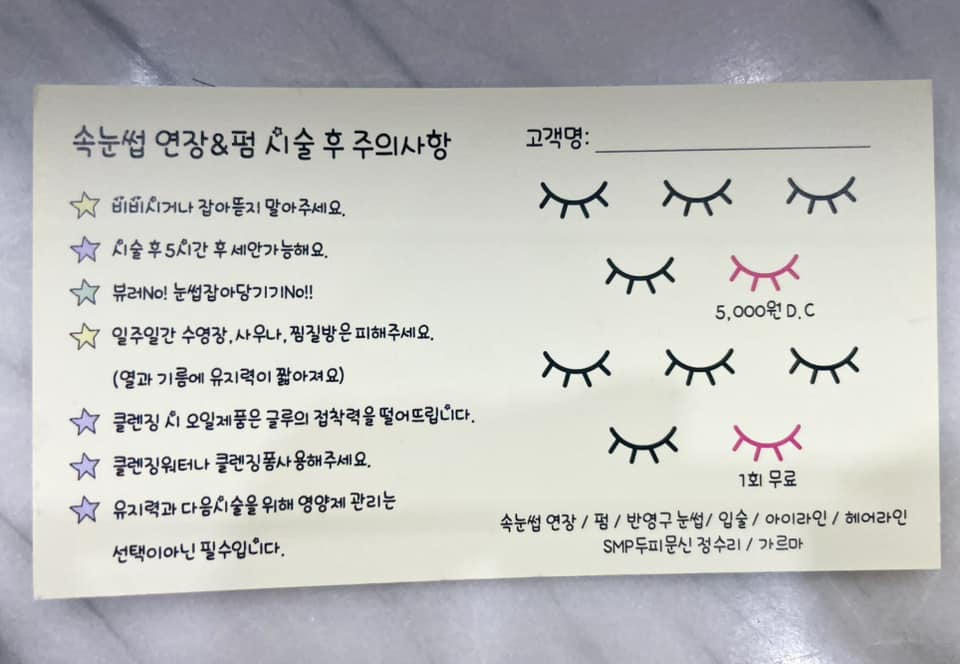 속눈썹 연장&펌 시술 후 주의사항
비비시거나 잡아뜯지 말아주세요.
시술 후 5시간 후 세안가능해요.
뷰러No! 눈썹잡아당기기No!!
일주일간 수영장, 사우나, 찜질방은 피해주세요.
(열과 기름에 유지력이 짧아져요)
클렌징 시 오일제품은 글루의 접착력을 떨어뜨립니다.
클렌징워터나 클렌징폼사용해주세요.
유지력과 다음시술을 위해 영양제 관리는
선택이아닌 필수입니다.
고객명:
5,000원 D.C
1회 무료
속눈썹 연장 / 펌 / 반영구 눈썹/ 입술 / 아이라인 / 헤어라인
SMP두피문신 정수리 / 가르마